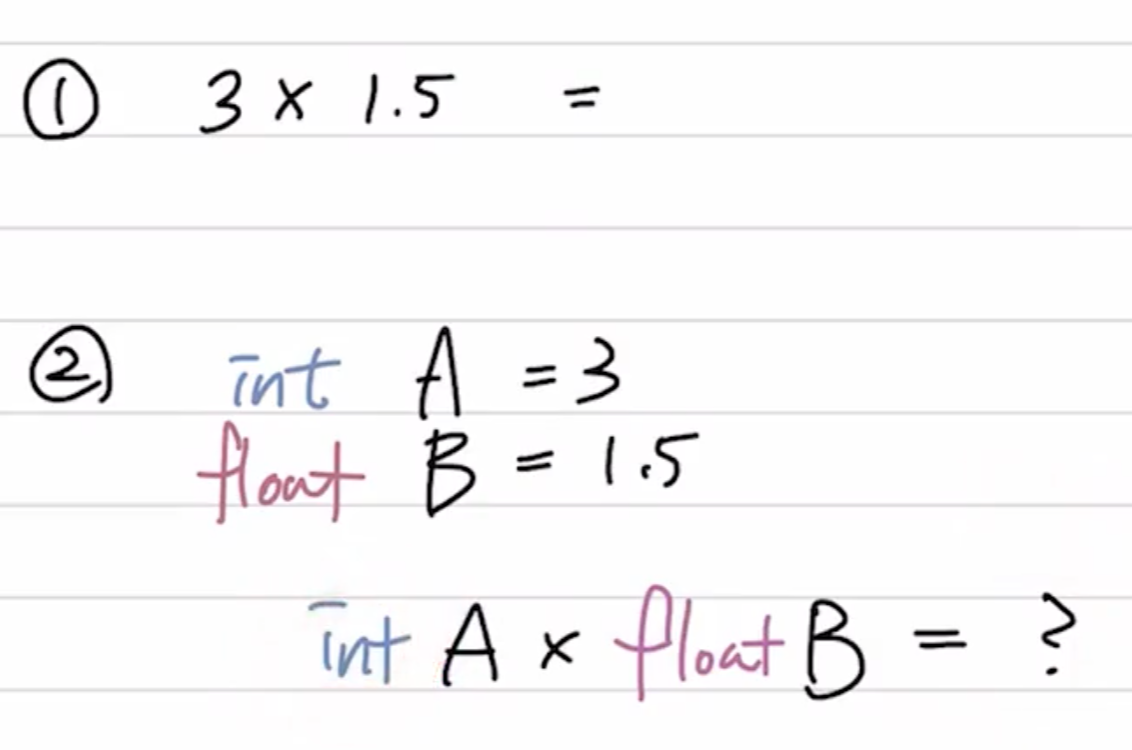 ① 3 × 1.5 =
② int A = 3
float B = 1.5
int A × float B = ?